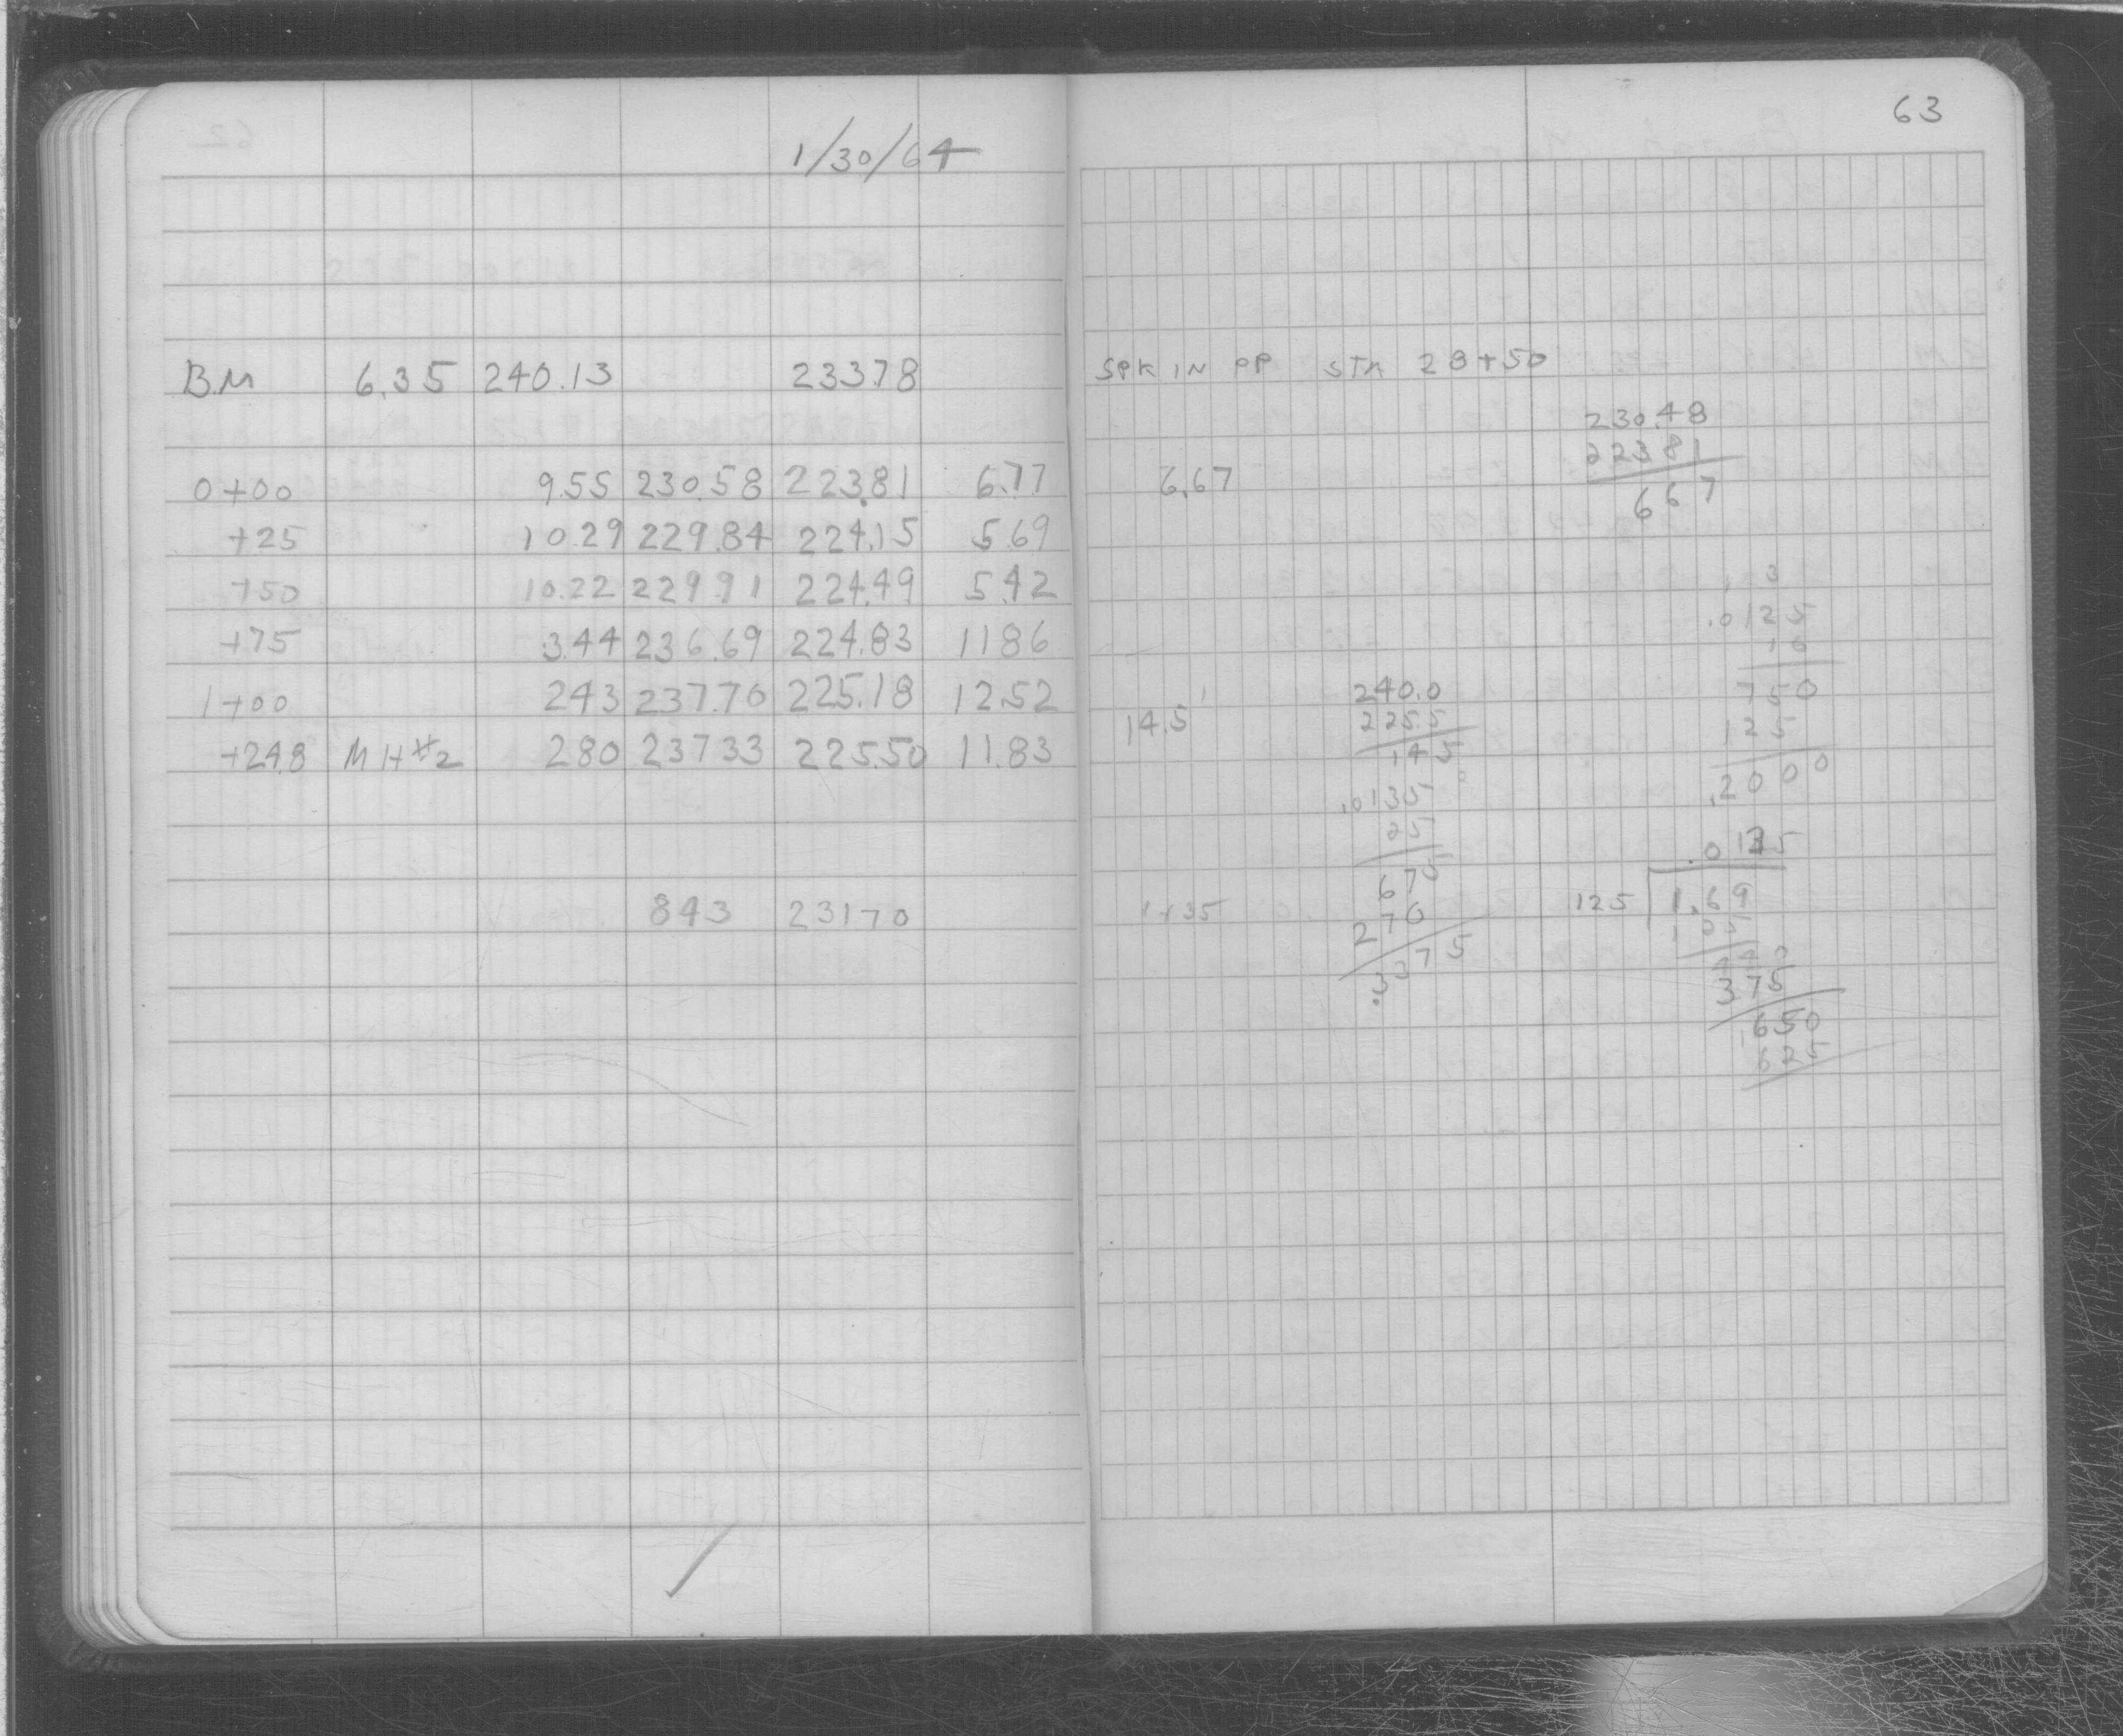 1/30/64
B.M 6.35 240.13 23378
0+00 9.55 230.58 223.81 6.77
+25 10.29 229.84 224.15 5.69
+50 10.22 229.91 224.49 5.42
+75 3.44 236.69 224.83 11 86
1+00 243 237.70 225.18 12.52
+24.8 MH#2 280 23733 225.50 11.83
843 23170
63
SPK IN PP STA 28+50
230.48
223 81
6.67 6 6 7
.0125
16
750
125
.2000
240.0
225.5
14.5' 14 5
.0135
25
675
270
1+35
.3375
.0135
125 1.69
125
440
375
650
625